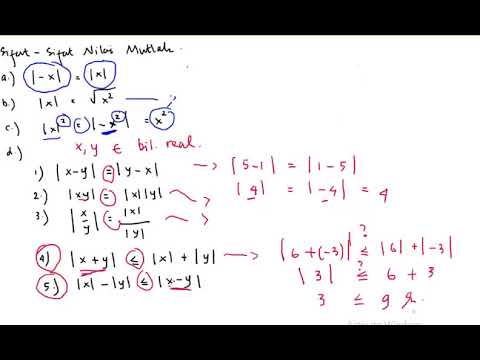 Sifat - Sifat Nilai Mutlak.
a.) |-x| = |x|
b.) |x| = √x²
c.) |x|² = |-x²| = x²
d.) x, y ∈ bil. real.
1) |x-y| = |y-x| → |5-1| = |1-5|
2.) |xy| = |x||y| |4| = |-4| = 4
3.) |x/y| = |x|/|y|
4) |x+y| ≤ |x| + |y| → |6+(-3)| ≤ |6| + |-3|
?
5.) |x| - |y| ≤ |x-y| |3| ≤ 6 + 3
?
3 ≤ 9